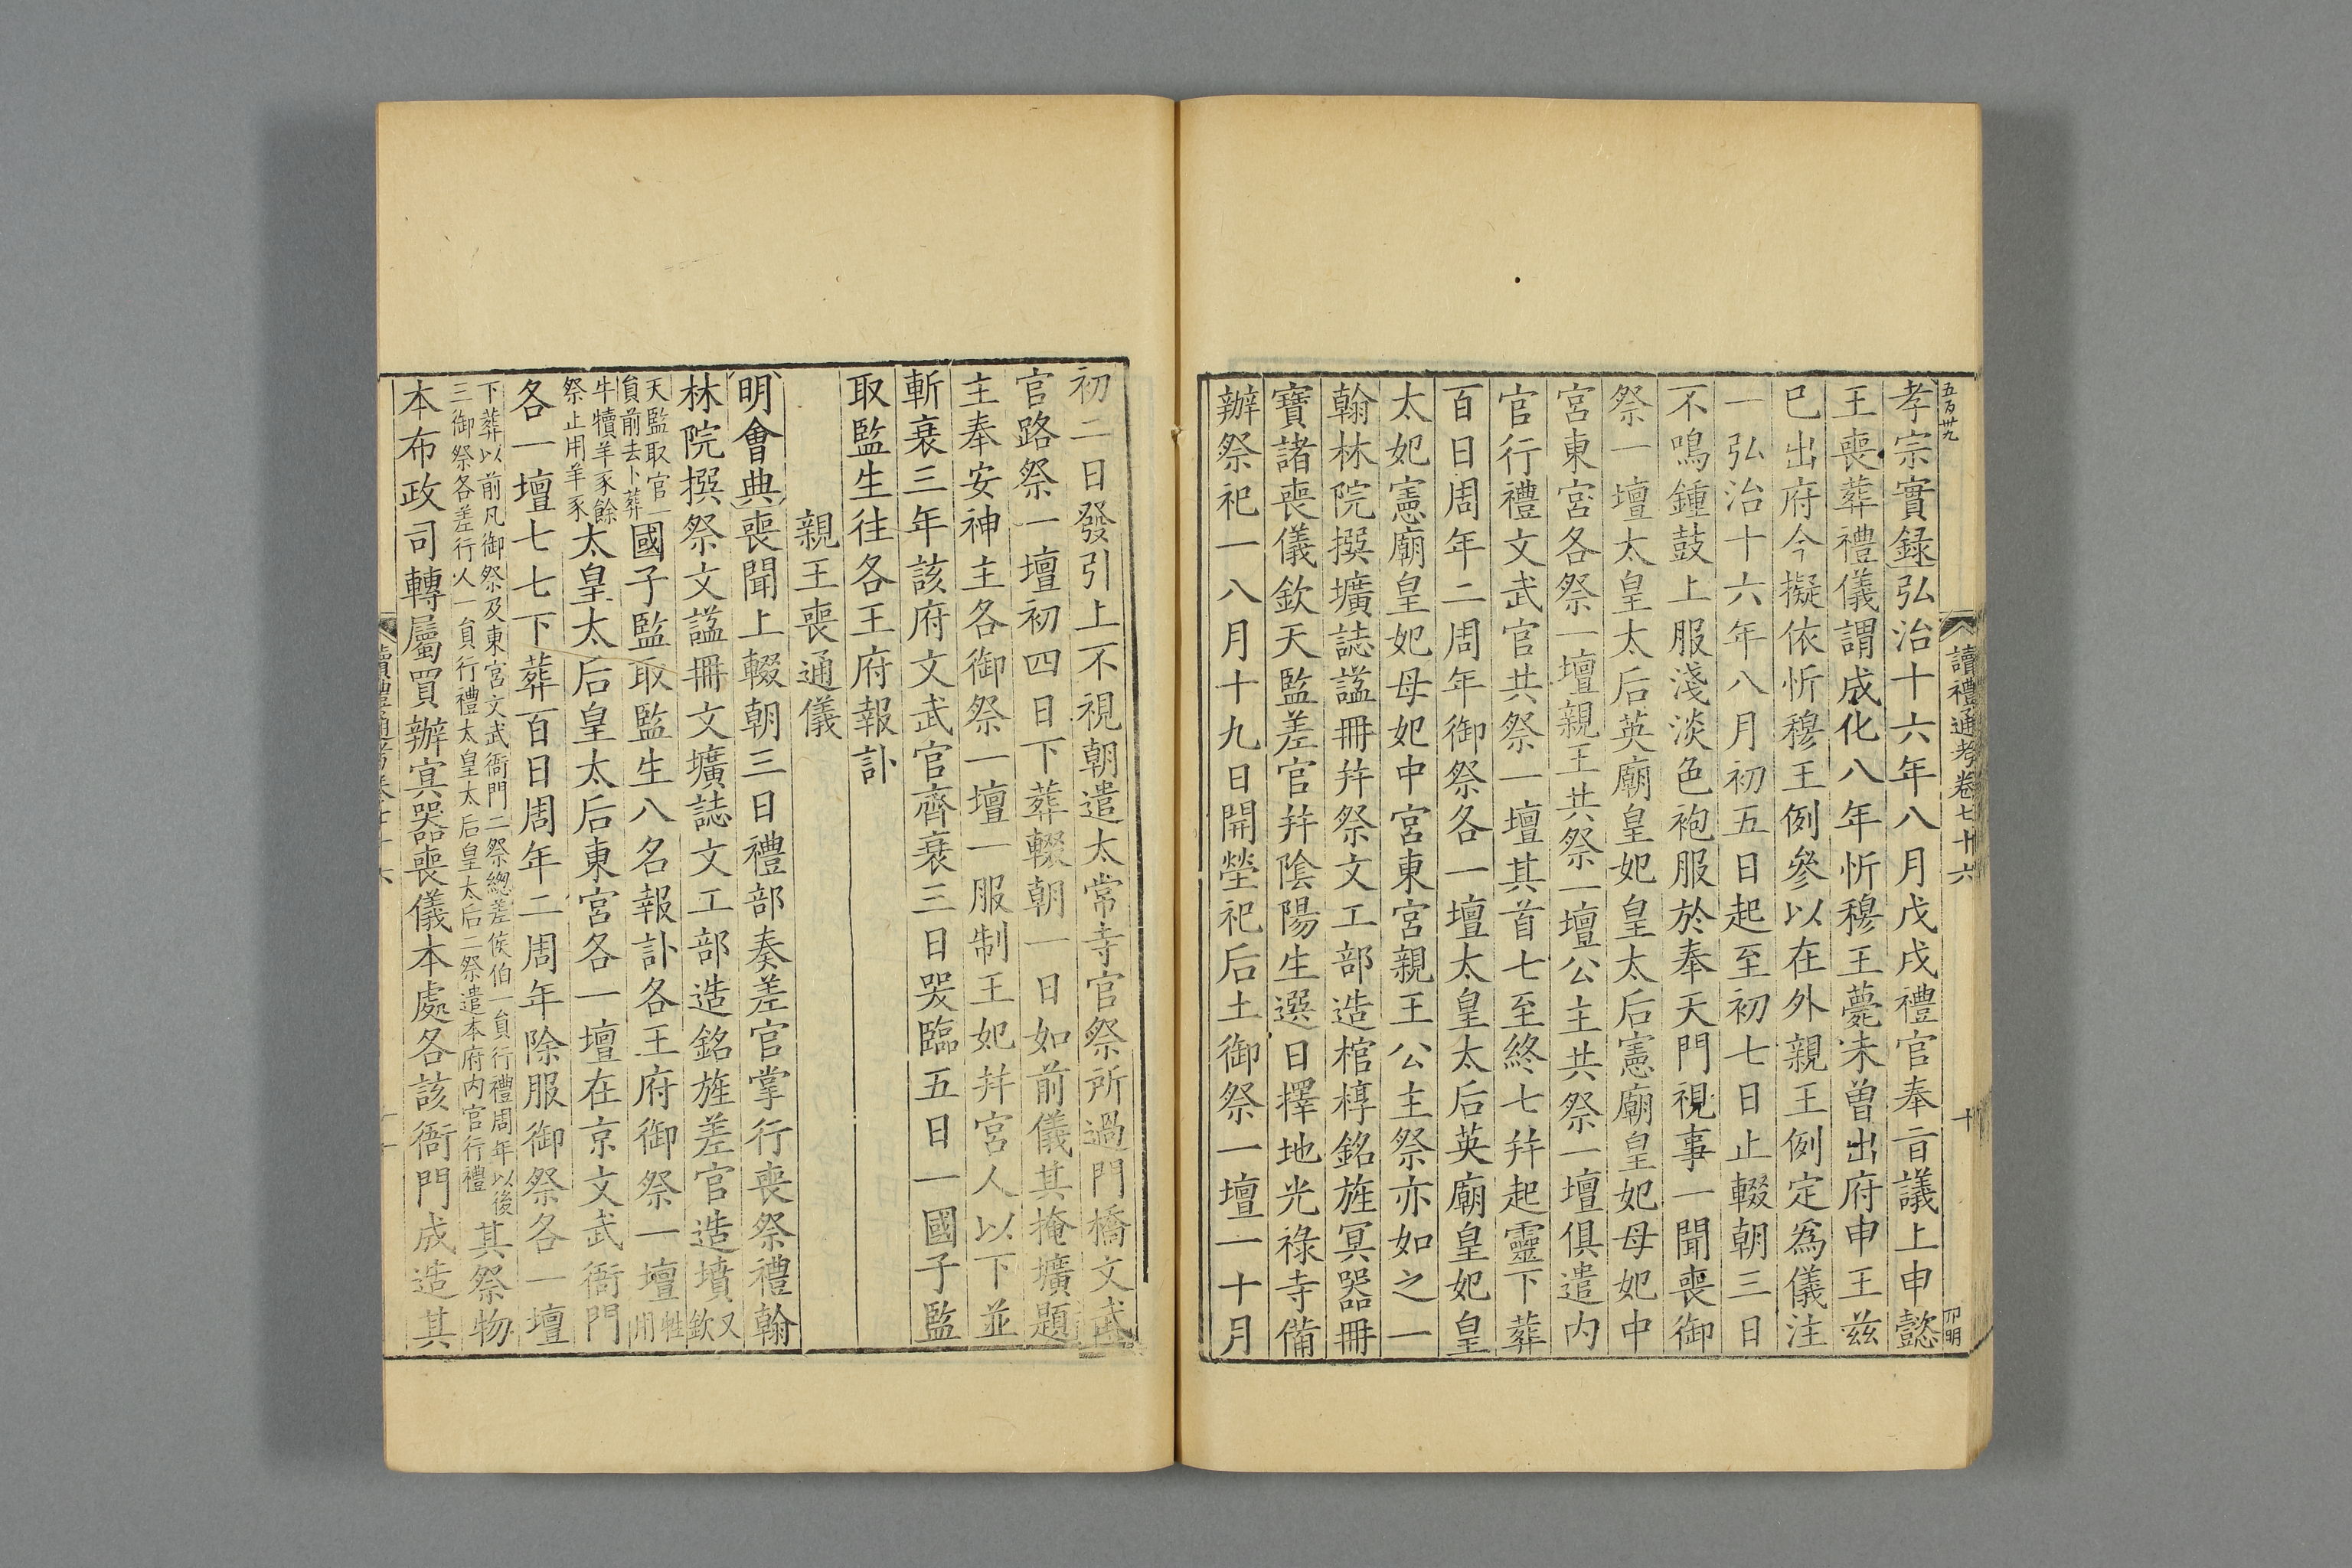 五百卅九
讀禮通考卷七十六
十
孝宗實録弘治十六年八月戊戌禮官奉㫖議上申懿
王喪葬禮儀謂成化八年忻穆王薨未曾出府申王兹
巳出府今擬依忻穆王例參以在外親王例定爲儀注
一弘治十六年八月初五日起至初七日止輟朝三日
不鳴鍾鼓上服淺淡色袍服於奉天門視事一聞喪御
祭一壇太皇太后英廟皇妃皇太后憲廟皇妃母妃中
宮東宮各祭一壇親王共祭一壇公主共祭一壇俱遣内
官行禮文武官共祭一壇其首七至終七幷起靈下葬
百日周年二周年御祭各一壇太皇太后英廟皇妃皇
太妃憲廟皇妃母妃中宮東宮親王公主祭亦如之一
翰林院撰壙誌諡冊幷祭文工部造棺椁銘旌冥器冊
寶諸喪儀欽天監差官幷陰陽生選日擇地光祿寺備
辦祭祀一八月十九日開塋祀后土御祭一壇一十月
初二日發引上不視朝遣太常寺官祭所過門橋文武
官路祭一壇初四日下葬輟朝一日如前儀其掩壙題
主奉安神主各御祭一壇一服制王妃幷宮人以下並
斬衰三年該府文武官齊衰三日哭臨五日一國子監
取監生往各王府報訃
親王喪通儀
明會典喪聞上輟朝三日禮部奏差官掌行喪祭禮翰
林院撰祭文諡冊文壙誌文工部造銘旌差官造墳又欽
天監取官一員前去卜葬國子監取監生八名報訃各王府御祭一壇牲用
牛犢羊豕餘祭止用羊豕太皇太后皇太后東宮各一壇在京文武衙門
各一壇七七下葬百日周年二周年除服御祭各一壇
下葬以前凡御祭及東宮文武衙門二祭總差侯伯一員行禮周年以後三御祭各差行人一員行禮太皇太后皇太后二祭遣本府内官行禮其祭物
本布政司轉屬買辦冥器喪儀本處各該衙門成造其